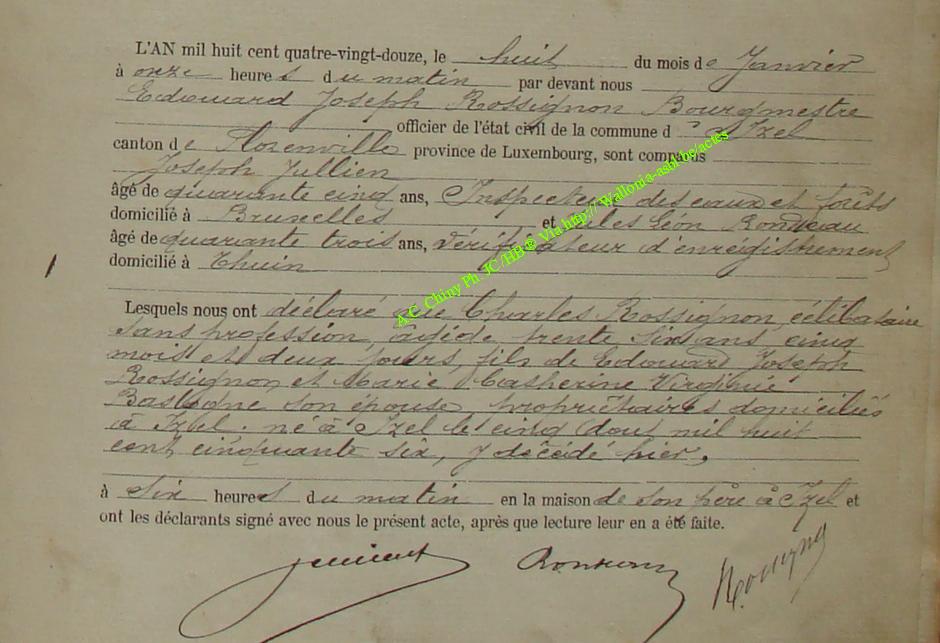 L'AN mil huit cent quatre-vingt-douze, le huit du mois de Janvier
à onze heures du matin par devant nous
Edouard Joseph Rossignon Bourgmestre
officier de l'état civil de la commune d'Izel
canton de Florenville province de Luxembourg, sont comparus
Joseph Jullien
âgé de quarante cinq ans, Inspecteur des eaux et forêts
domicilié à Bruxelles et Jules Léon Rondeau
âgé de quarante trois ans, vérificateur d'enrégistrement
domicilié à Thuin
Lesquels nous ont déclaré que Charles Rossignon, célibataire
sans profession, âgé de trente six ans, cinq
mois et deux jours, fils de Edouard Joseph
Rossignon et Marie Catherine Virginie
Bastogne son épouse, propriétaires domiciliés
à Izel. né à Izel le cinq Aout mil huit
cent cinquante six, y décédé hier,
à six heures du matin en la maison de son père à Izel et
ont les déclarants signé avec nous le présent acte, après que lecture leur en a été faite.
A.C. Chiny Ph. JC/HB ® Via http://Wallonia-asbl.be/actes